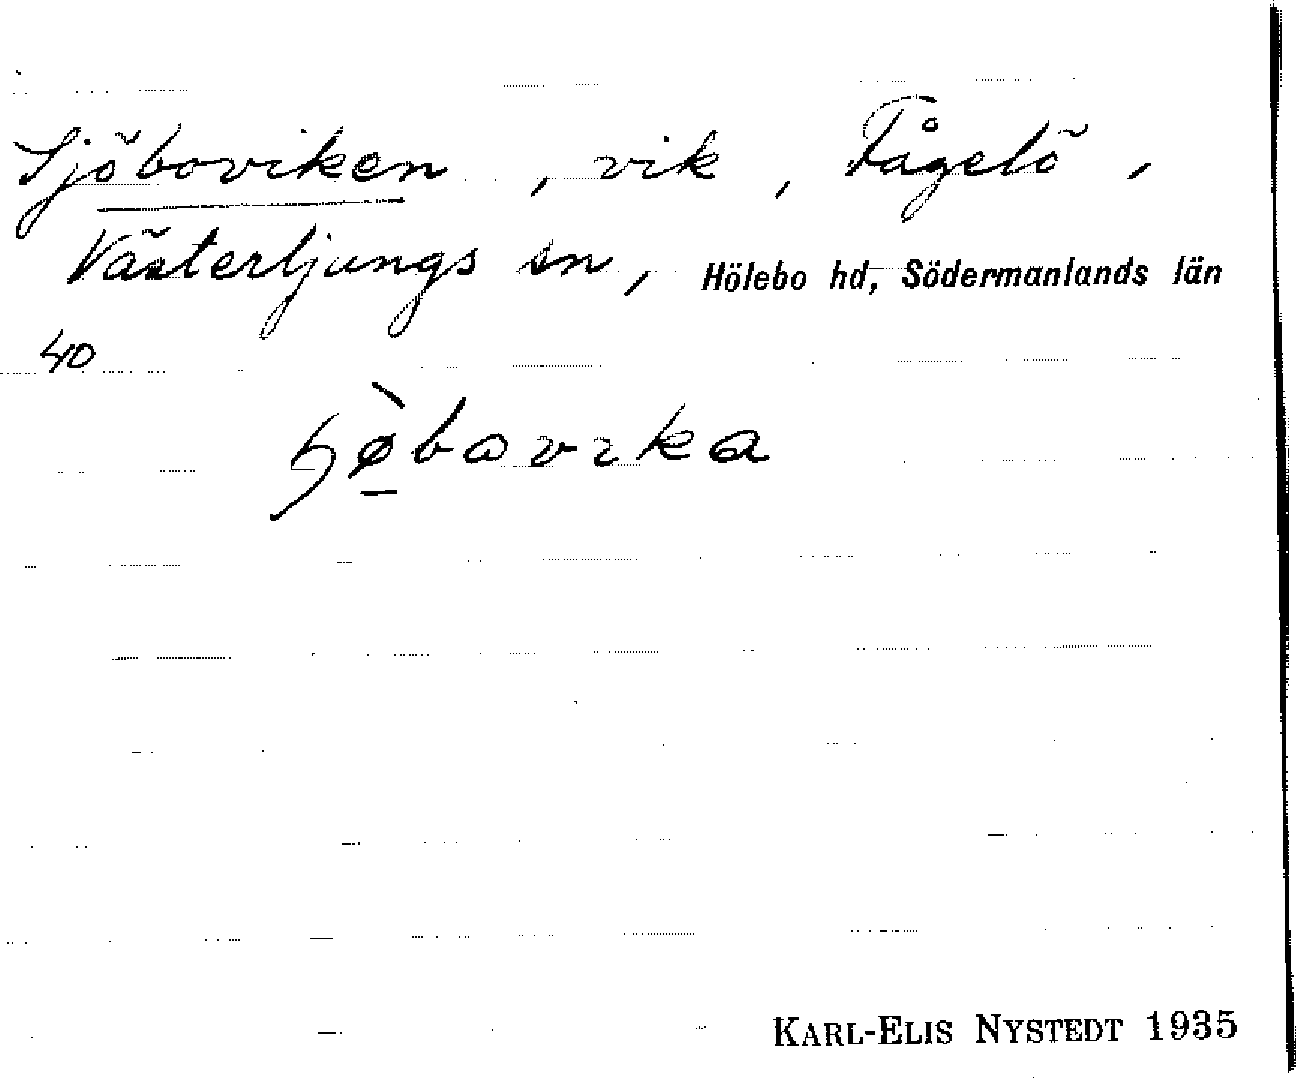 Sjöboviken, vik, Fågelö,
Västerljungs sn, Hölebo hd, Södermanlands län
40
KARL-ELIS NYSTEDT 1935